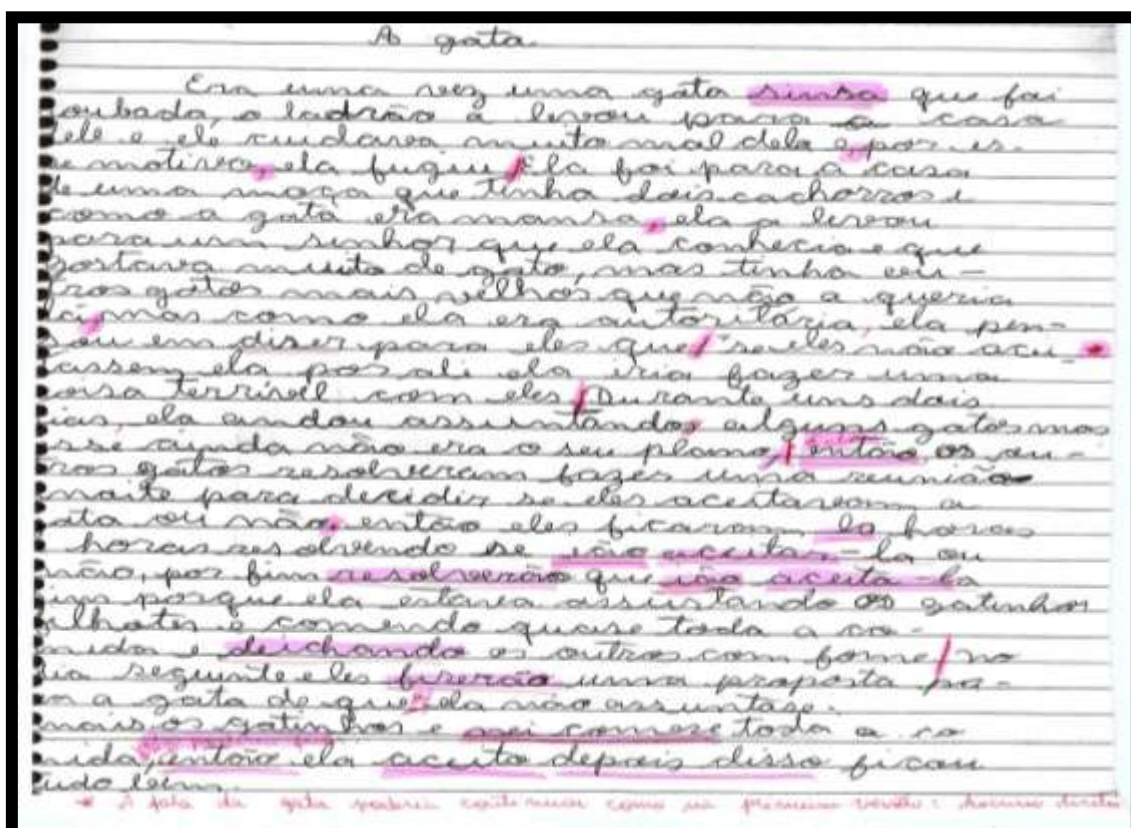 A gata.
Era uma vez uma gata sinsa que foi
roubada, o ladrão a levou para a casa
dele e ele cuidava muito mal dela e por es-
se motivo, ela fugiu Ela foi para a casa
de uma moça que tinha dois cachorros e
como a gata era mansa, ela a levou
para um senhor que ela conhecia e que
gostava muito de gato, mas tinha ou-
tros gatos mais velhos que não a queria
mas como ela era autoritária, ela pen-
sou em diser para eles que se eles não acei-
tassem ela por ali ela iria fazer uma
coisa terrivel com eles Durante uns dois
dias, ela andou assuntando, alguns gatos mas
esse ainda não era o seu plano, então os ou-
tros gatos resolveram fazer uma reunião
noite para decidir se eles aceitaream a
gata ou não, então eles ficaram horas
horas resolvendo se ião aceitar-la ou
não, por fim resolverão que ião aceita-la
sim porque ela estava assustando os gatinhos
filhotes e comendo quase toda a co-
mida e deichando os outros com fome no
dia seguinte eles fizerão uma proposta pa-
ra a gata de que ela não assuntase
mais os gatinhos e nei comese toda a co
mida, então ela aceito depois disso ficou
tudo bem.
* A fala da gata poderia continuar como na primeira versão: discurso direto